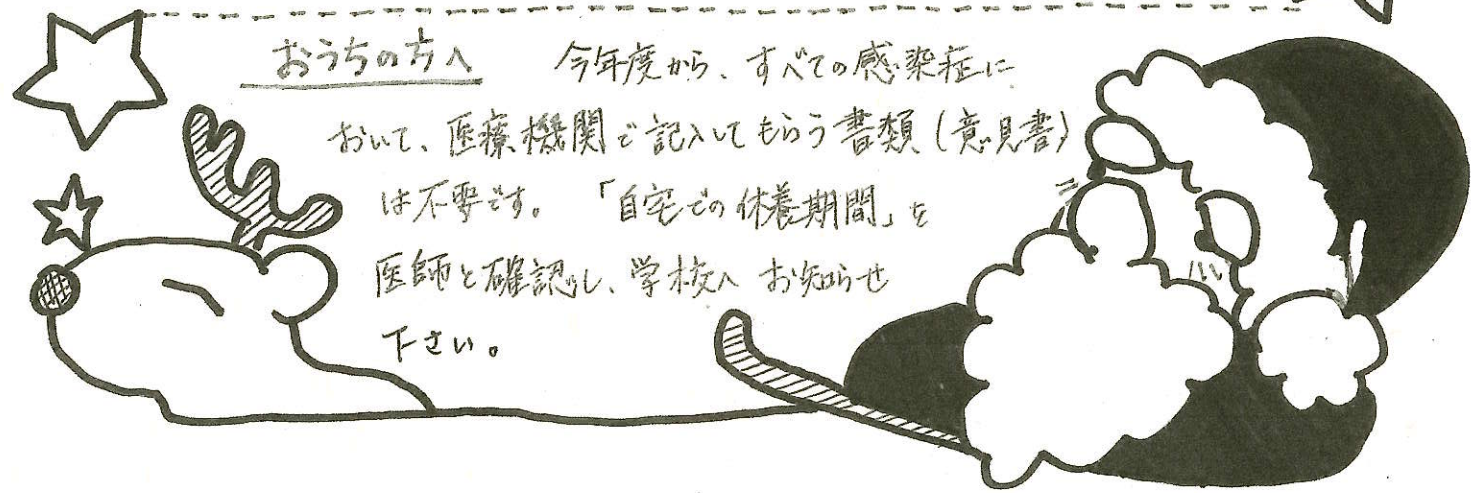 おうちの方へ　今年度から、すべての感染症に
おいて、医療機関で記入してもらう書類（意見書）
は不要です。「自宅での休養期間」を
医師と確認し、学校へ お知らせ
下さい。